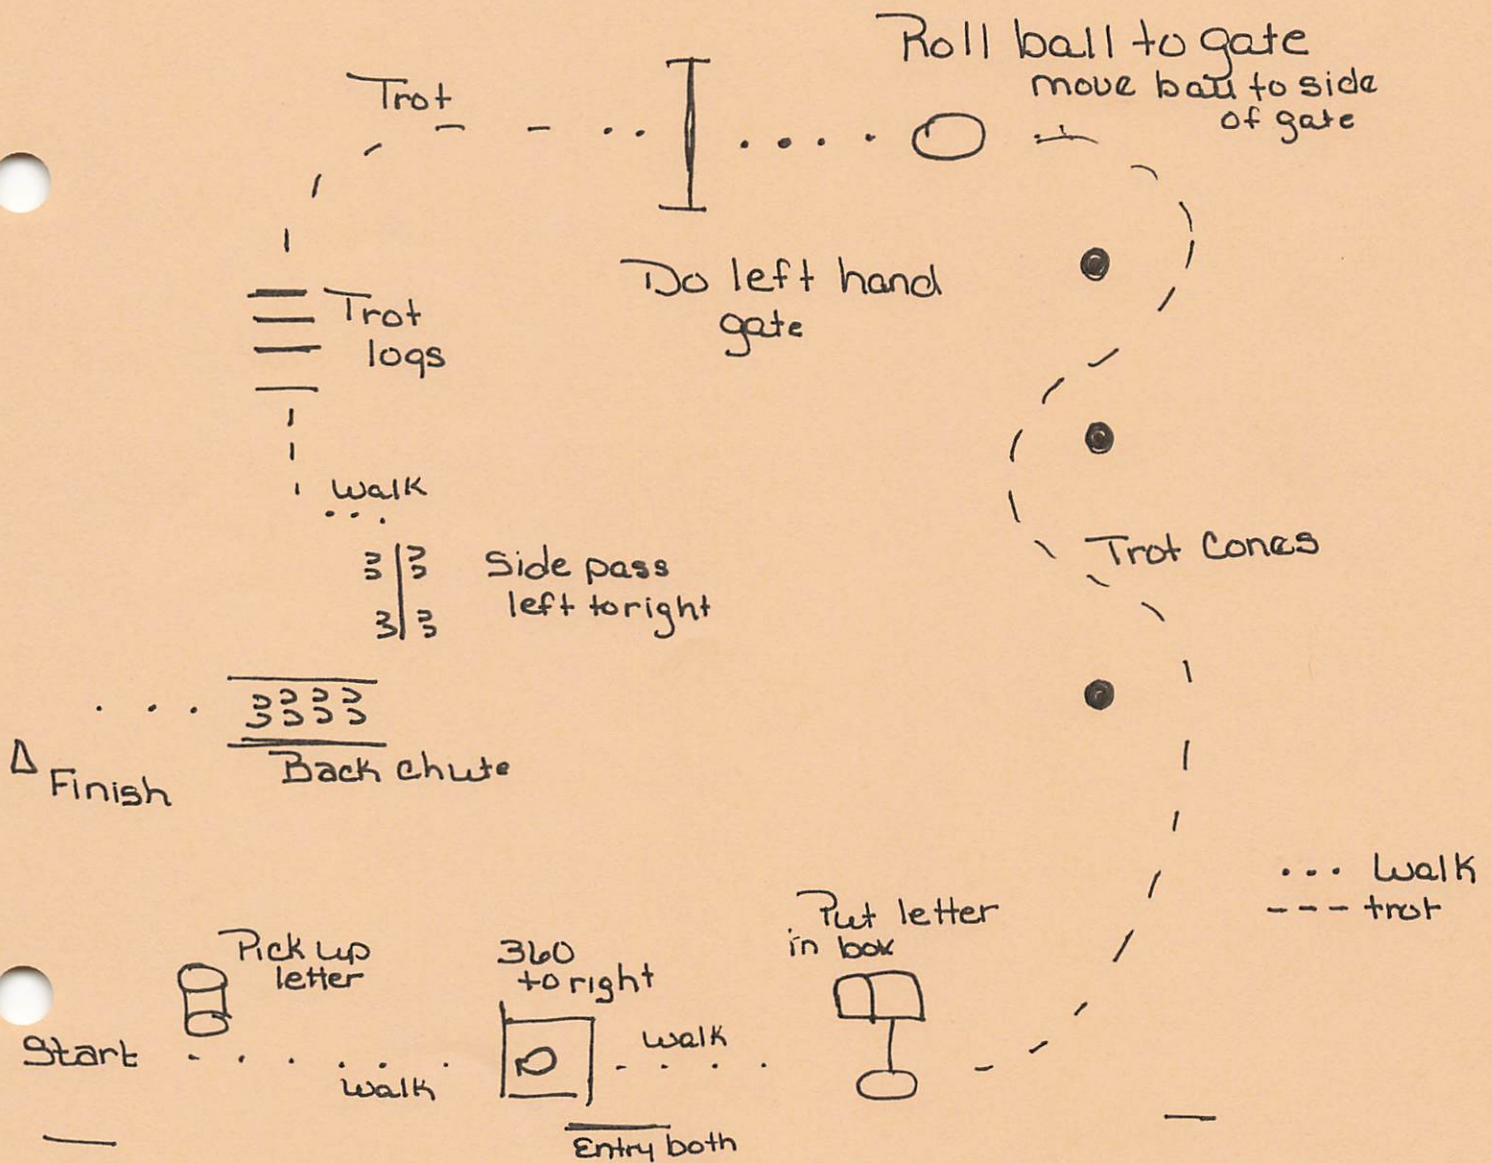 Roll ball to gate
move ball to side
of gate
Trot
Do left hand
gate
Trot
logs
walk
Side pass
left to right
Trot Cones
Back chute
Finish
... walk
--- trot
Put letter
in box
Pick up
letter
360
to right
Start
walk
walk
Entry both